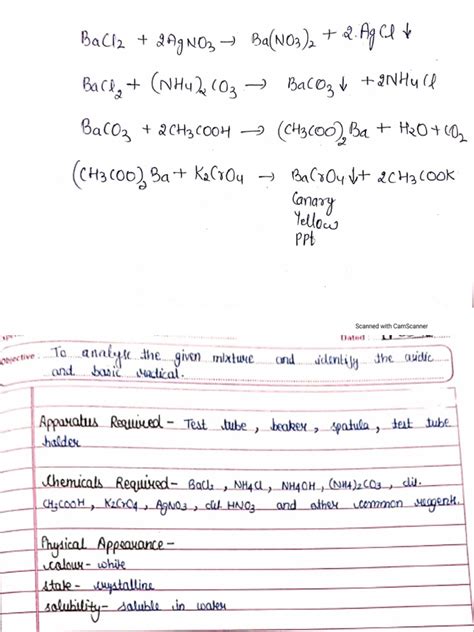 BaCl2 + 2AgNO3 → Ba(NO3)2 + 2AgCl↓
BaCl2 + (NH4)2CO3 → BaCO3↓ + 2NH4Cl
BaCO3 + 2CH3COOH → (CH3COO)2Ba + H2O + CO2
(CH3COO)2Ba + K2CrO4 → BaCrO4↓ + 2CH3COOK
Canary
Yellow
PPt
Scanned with CamScanner
Dated :
Objective To analyse the given mixture and identify the acidic
and basic radical.
Apparatus Required - Test tube, beaker, spatula, test tube
holder
Chemicals Required - BaCl2, NH4Cl, NH4OH, (NH4)2CO3, dil.
CH3COOH, K2CrO4, AgNO3, dil HNO3 and other common reagents.
Physical Appearance -
colour - white
state - crystalline
solubility - soluble in water